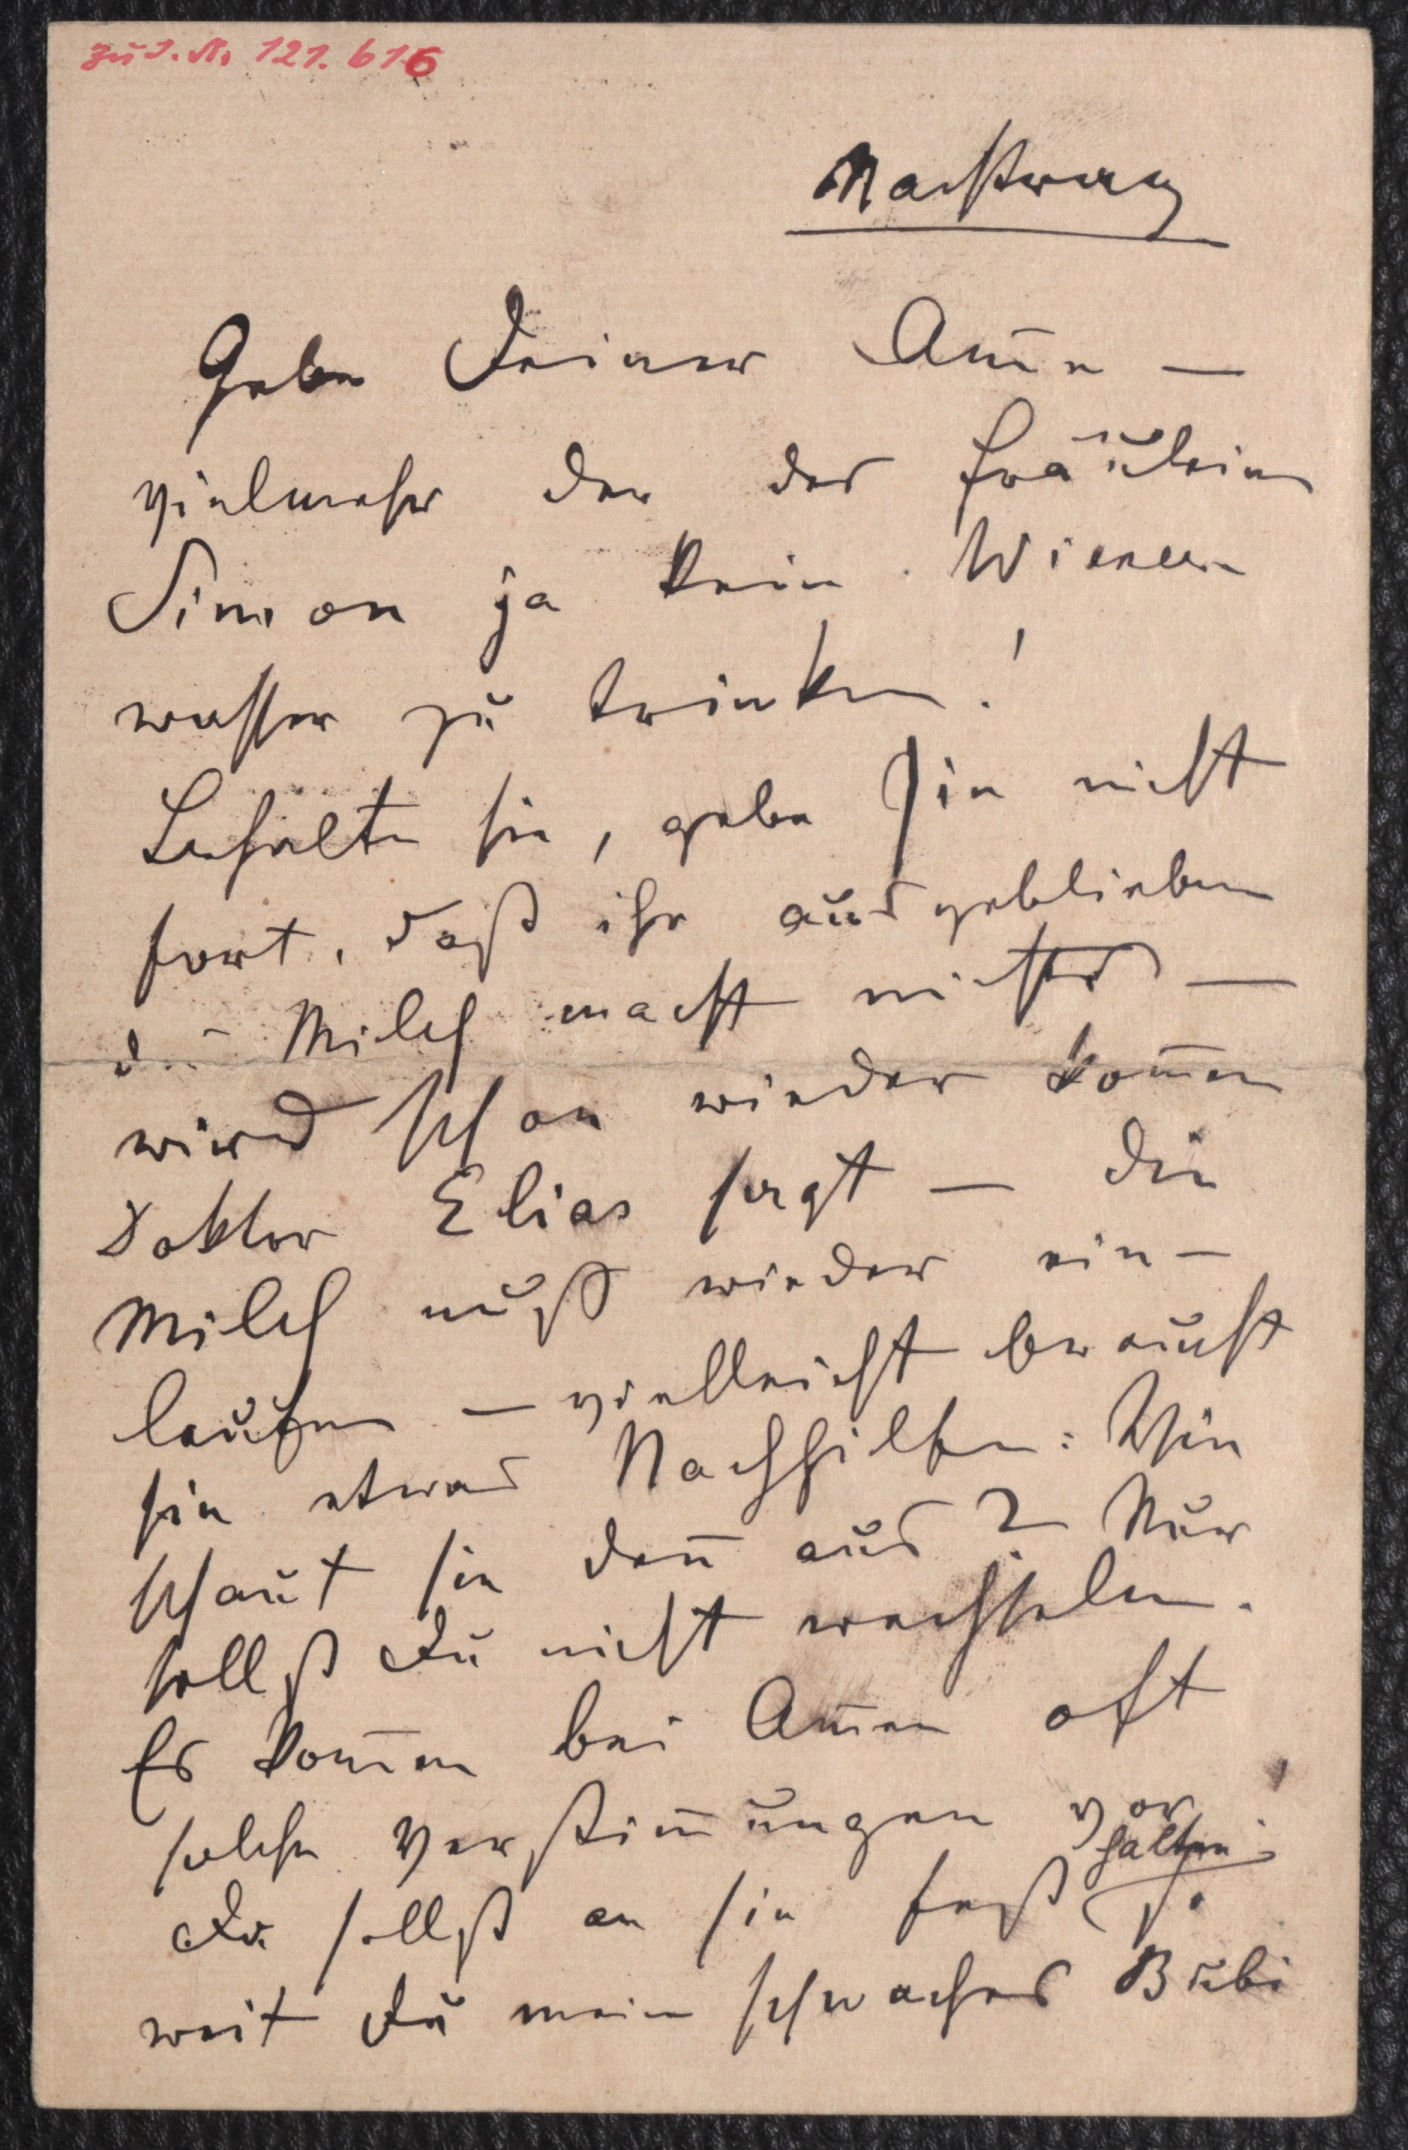 zu I. N. 121.616
Nachtrag
Gebe Deiner Am̄e —
vielmehr der des Fräulein
Simon ja kein Wiener
wasser zu trinken!
Behalte sie, gebe sie nicht
fort. Daß ihr ausgeblieben
die Milch macht nichts —
wird schon wieder kom̄en
Doktor Elias sagt — die
Milch muß wieder ein-
laufen — vielleicht braucht
sie etwas Nachhilfe: Wie
schaut sie den̄ aus? Nur
sollst Du nicht wechseln.
Es kom̄en bei Am̄en oft
solche Verstim̄ungen vor
Du sollst an sie fest halten so
weit Du mein schwaches Bubi